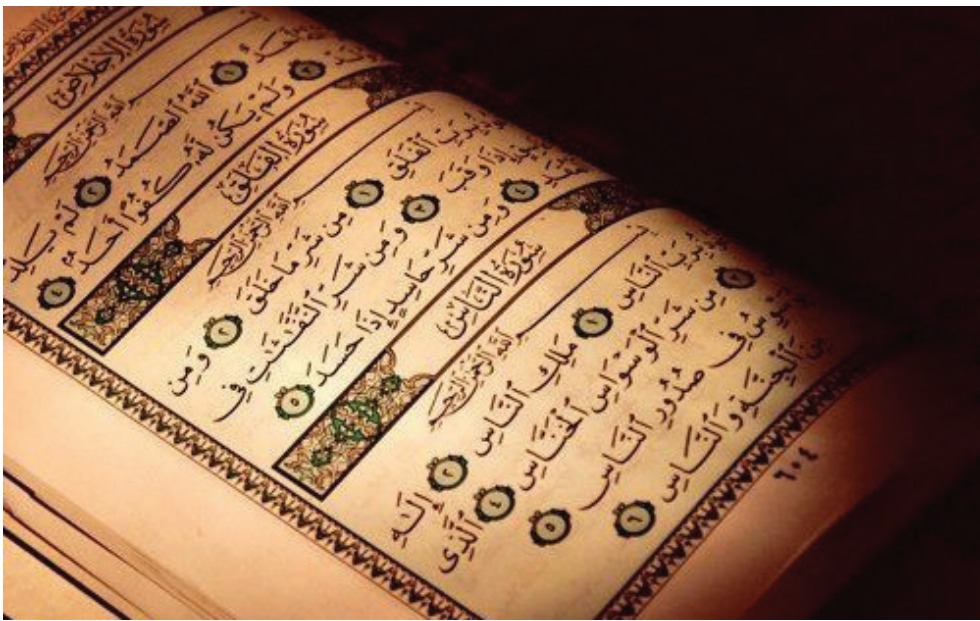 سُورَةُ الإِخْلَاصِ
ٱللَّهِ ٱلرَّحْمَٰنِ ٱلرَّحِيمِ
١ ٱللَّهُ ٱلصَّمَدُ ٢ لَمْ يَلِدْ
٣ وَلَمْ يَكُن لَّهُۥ كُفُوًا أَحَدٌۢ ٤
سُورَةُ الْفَلَقِ
ٱللَّهِ ٱلرَّحْمَٰنِ ٱلرَّحِيمِ
بِرَبِّ ٱلْفَلَقِ ١ مِن شَرِّ مَا خَلَقَ ٢ وَمِن
إِذَا وَقَبَ ٣ وَمِن شَرِّ ٱلنَّفَّٰثَٰتِ فِى
٤ وَمِن شَرِّ حَاسِدٍ إِذَا حَسَدَ ٥
سُورَةُ النَّاسِ
ٱللَّهِ ٱلرَّحْمَٰنِ ٱلرَّحِيمِ
بِرَبِّ ٱلنَّاسِ ١ مَلِكِ ٱلنَّاسِ ٢ إِلَٰهِ
٣ مِن شَرِّ ٱلْوَسْوَاسِ ٱلْخَنَّاسِ ٤ ٱلَّذِى
يُوَسْوِسُ فِى صُدُورِ ٱلنَّاسِ ٥
مِنَ ٱلْجِنَّةِ وَٱلنَّاسِ ٦
٦٠٤